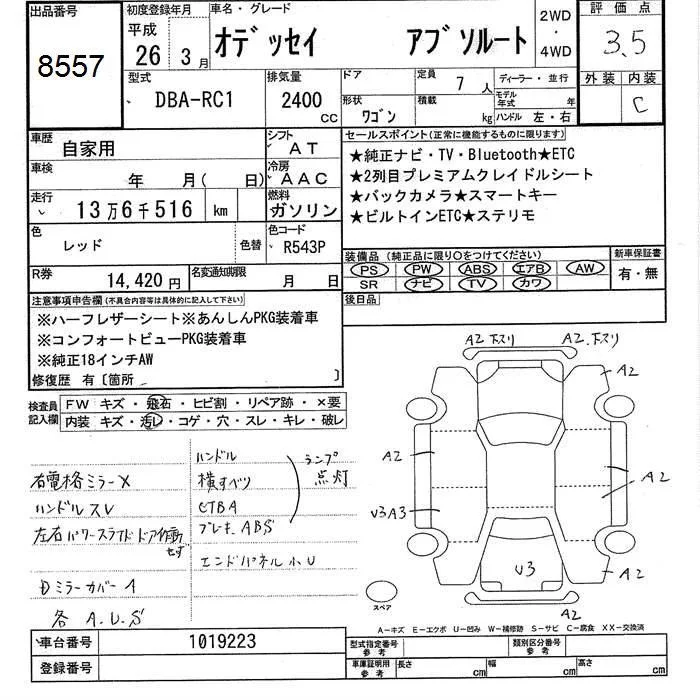 出品番号
8557
初度登録年月
平成
26年 3月
車名・グレード
オデッセイ アブソルート
2WD
・
4WD
評価点
3.5
外装 内装
C
型式
DBA-RC1
排気量
2400
cc
ドア
形状
ワゴン
定員
7人
積載
kg
ディーラー・並行
モデル年式
年
ハンドル 左・右
車歴
自家用
シフト
AT
車検
年 月(日)
冷房
AAC
走行
13万6千516 km
燃料
ガソリン
色
レッド
色替
色コード
R543P
R券
14,420円
名変通知期限
月 日
セールスポイント(正常に機能するものに限ります)
★純正ナビ・TV・Bluetooth★ETC
★2列目プレミアムクレイドルシート
★バックカメラ★スマートキー
★ビルトインETC★ステリモ
装備品(純正品に限り○をつけてください)
PS PW ABS エアB AW
SR ナビ TV カワ
新車保証書
有・無
後日品
注意事項申告欄(不具合内容等は具体的に記入して下さい)
※ハーフレザーシート※あんしんPKG装着車
※コンフォートビューPKG装着車
※純正18インチAW
修復歴 有〔箇所 〕
検査員記入欄
FW キズ・飛石・ヒビ割・リペア跡・×要
内装 キズ・汚レ・コゲ・穴・スレ・キレ・破レ
右電格ミラーX
ハンドルスレ
左右パワースライドドア作動せず
Dミラーカバー1
各A.U.S
ハンドル
横すべり
CTBA
ブレーキ.ABS
ランプ点灯
エンドパネル小U
A2 下スリ
A2.下スリ
A2
A2
A2
V3A3
V3
A2
A2
スペア
A-キズ E-エクボ U-凹み W-補修跡 S-サビ C-腐食 XX-交換済
車台番号
1019223
登録番号
型式指定番号
参考
類別区分番号
参考
車庫証明用
参考
長さ cm
幅 cm
高さ cm